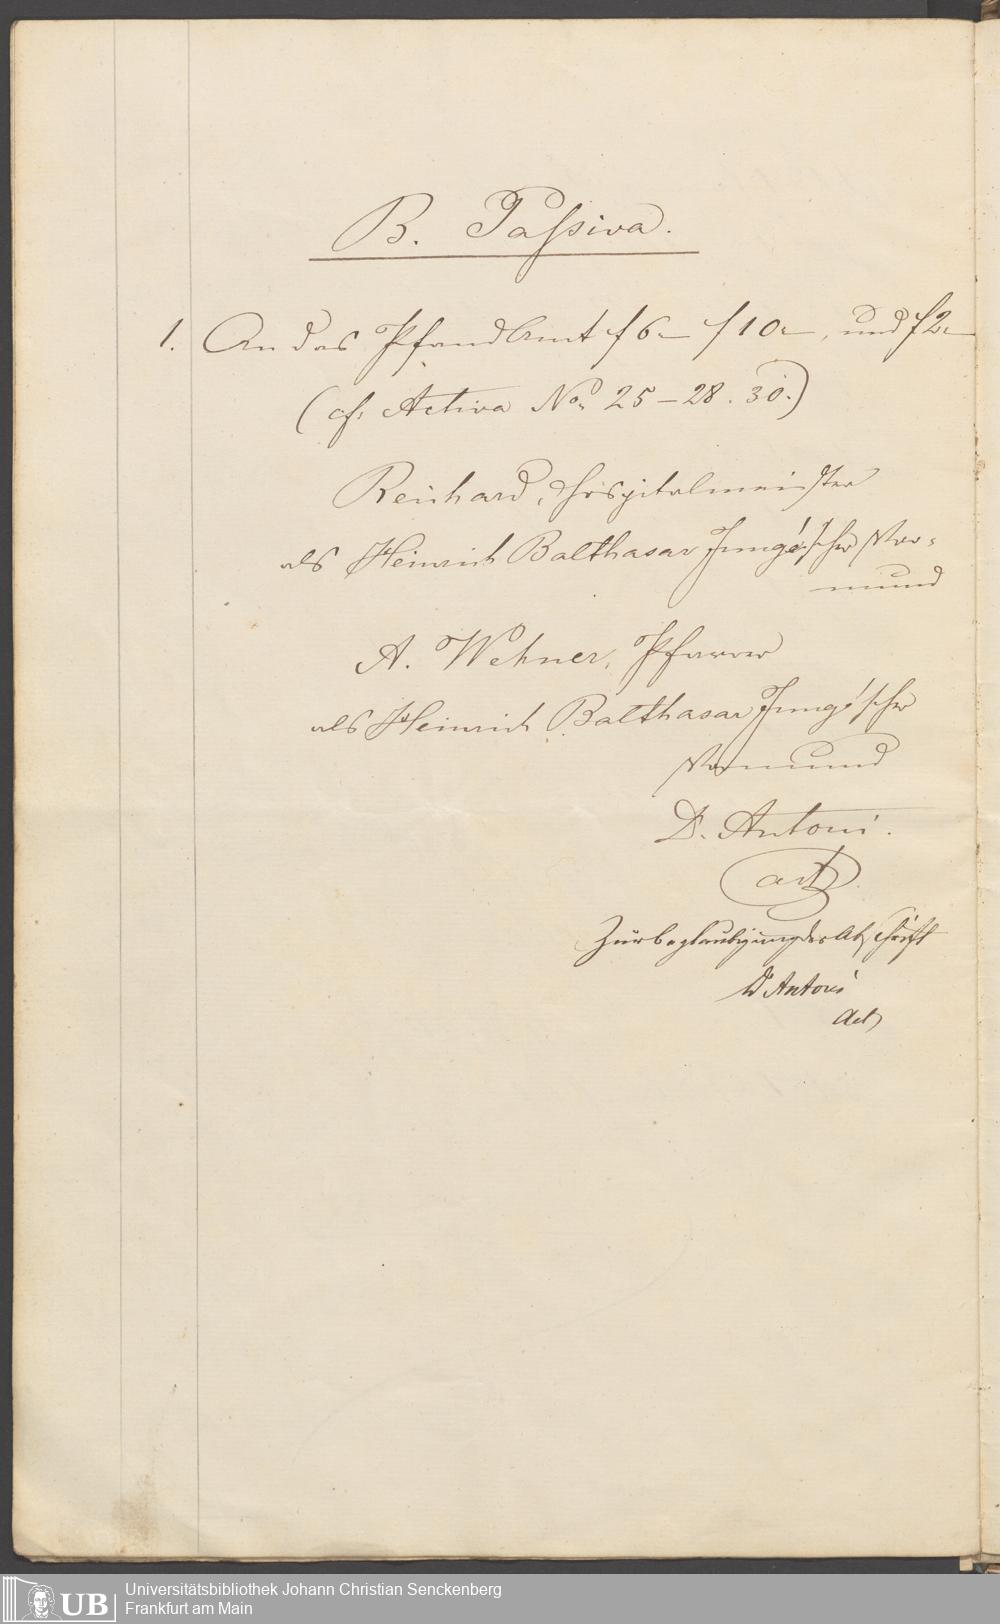 B. Passiva.
1. An das Pfandamt f 6.– f 10.–, und f 2.–
(cf. Activa No. 25–28. 30.)
Reinhard, Hospitalmeister
als Heinrich Balthasar Junge'scher Vor-
mund
A. Wehner, Pfarrer
als Heinrich Balthasar Jung'scher
Vormund
Dr. Antoni.
act.
Zur Beglaubigung der Abschrift
Dr Antoni
Act
UB
Universitätsbibliothek Johann Christian Senckenberg
Frankfurt am Main